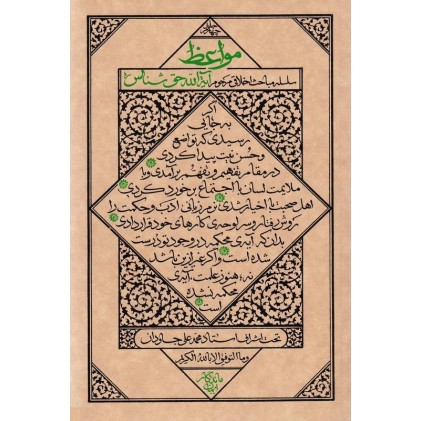 مواعظ
سلسله مباحث اخلاقی مرحوم آیة‌الله حق شناس
اگر
به جایی
رسیدی که تواضع
و حُسن نیت پیدا کردی
در مقام تفهیم و تفهّم برآمدی و با
ملایمت لسان با اجتماع برخورد کردی
اهل صحبت با اخیار شدی نرم زبانی ادب و حکمت را
روش رفتار و سرلوحه‌ی کارهای خود قرار دادی
بدان که آیه‌ی محکمه در وجود تو درست
شده است و اگر غیر از این باشد
نه، هنوز علمت، آیه‌ی
محکمه نشده
است
تحت اشراف استاد محمد علی جاودان
وما التوفیق الا بالله الکریم